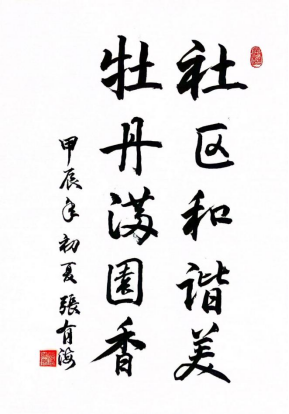 社区和谐美
牡丹满园香
甲辰年初夏張有海